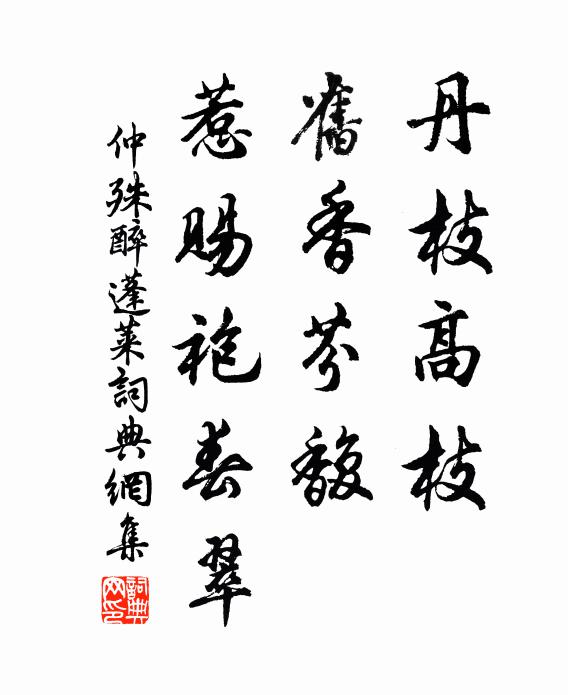 丹枝高枝
舊香芬馥
惹賜袍春翠
仲殊醉蓬萊詞典網集
詞典網印